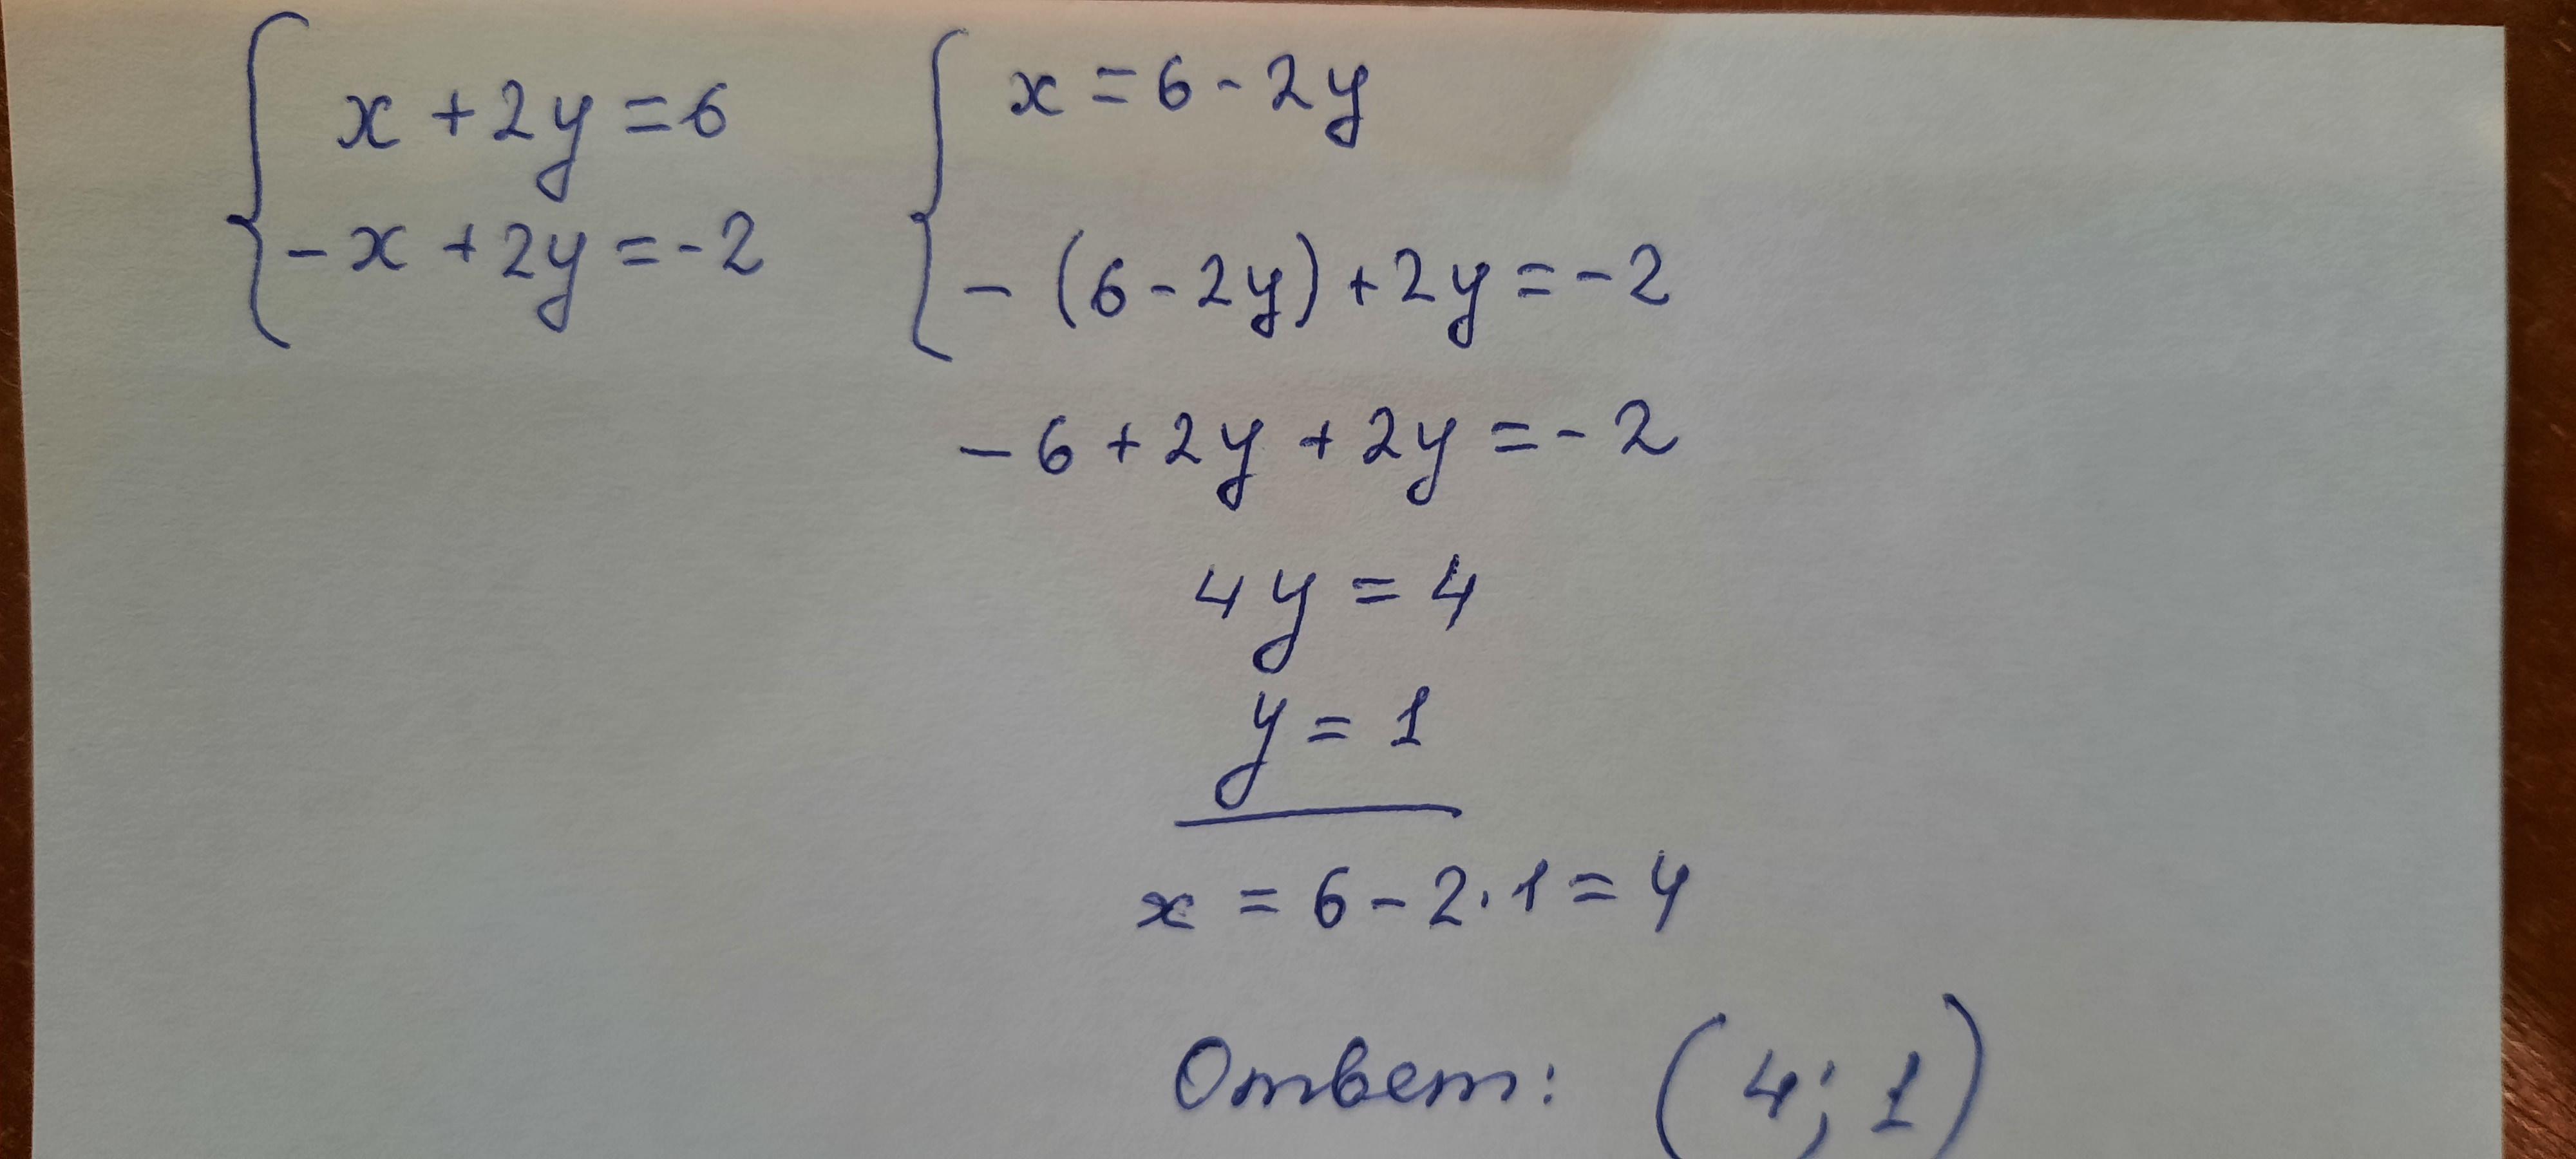 x + 2y = 6
-x + 2y = -2
x = 6 - 2y
-(6 - 2y) + 2y = -2
-6 + 2y + 2y = -2
4y = 4
y = 1
x = 6 - 2·1 = 4
Ответ: (4; 1)